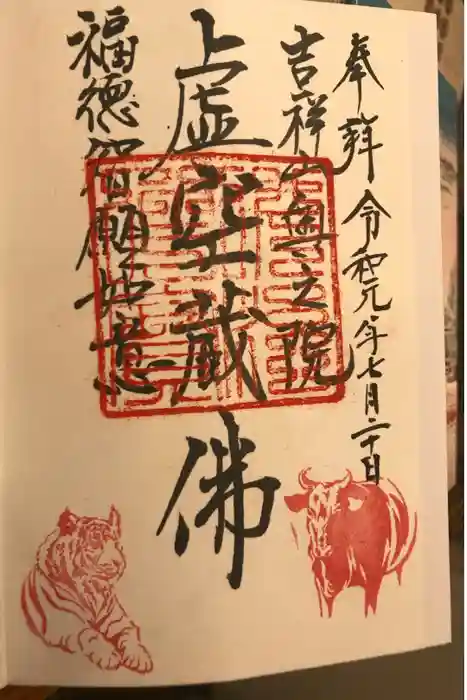 奉拜 令和元年七月二十日
吉祥山奥之院
虚空藏佛
福德智願如意